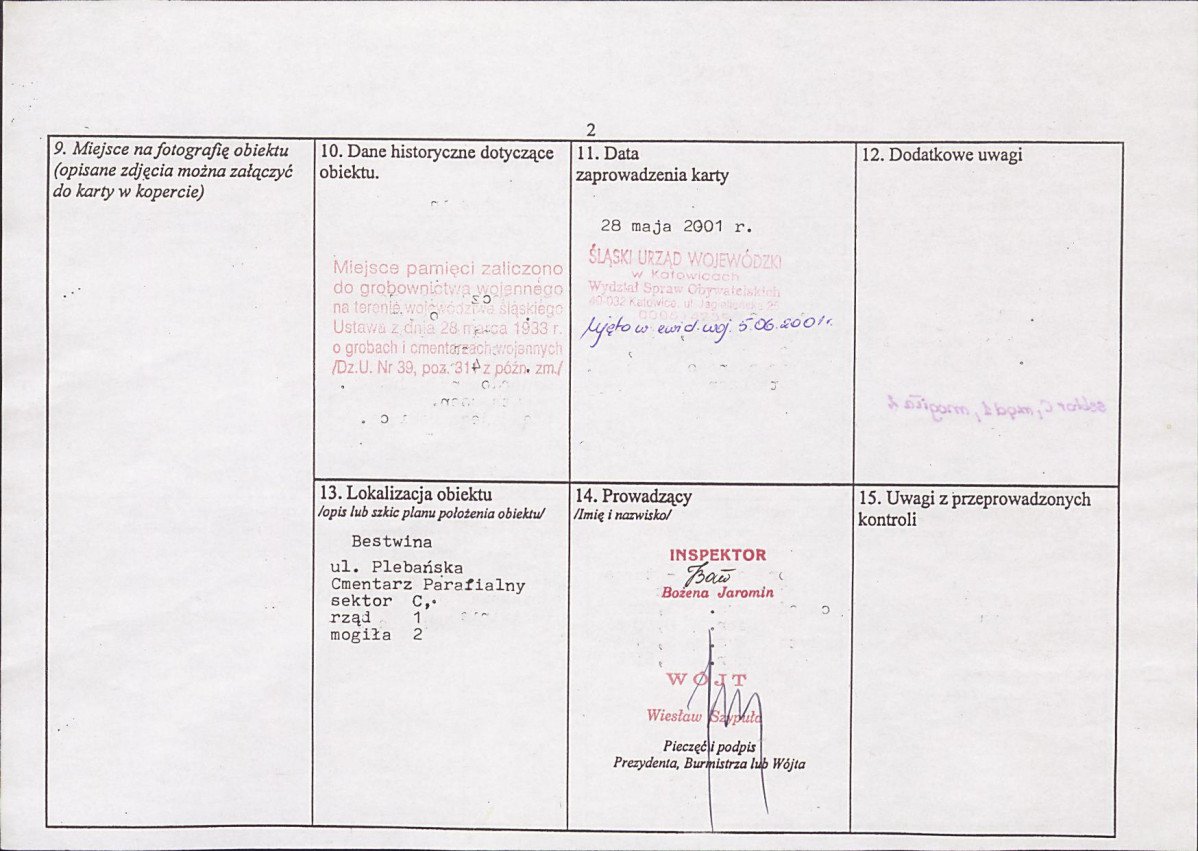 2
9. Miejsce na fotografię obiektu
(opisane zdjęcia można załączyć
do karty w kopercie)
10. Dane historyczne dotyczące
obiektu.
Miejsce pamięci zaliczono
do grobownictwa wojennego
na terenie województwa śląskiego
Ustawa z dnia 28 marca 1933 r.
o grobach i cmentarzach wojennych
/Dz.U. Nr 39, poz. 311 z późn. zm./
11. Data
zaprowadzenia karty
28 maja 2001 r.
ŚLĄSKI URZĄD WOJEWÓDZKI
w Katowicach
Wydział Spraw Obywatelskich
40-032 Katowice, ul. Jagiellońska
Ujęto w ewid. woj. 5.06.2001r.
12. Dodatkowe uwagi
sektor C, rząd 1, mogiła 2
13. Lokalizacja obiektu
/opis lub szkic planu położenia obiektu/
Bestwina
ul. Plebańska
Cmentarz Parafialny
sektor C,
rząd 1
mogiła 2
14. Prowadzący
/Imię i nazwisko/
INSPEKTOR
Bożena Jaromin
WÓJT
Wiesław Szypuła
Pieczęć i podpis
Prezydenta, Burmistrza lub Wójta
15. Uwagi z przeprowadzonych
kontroli